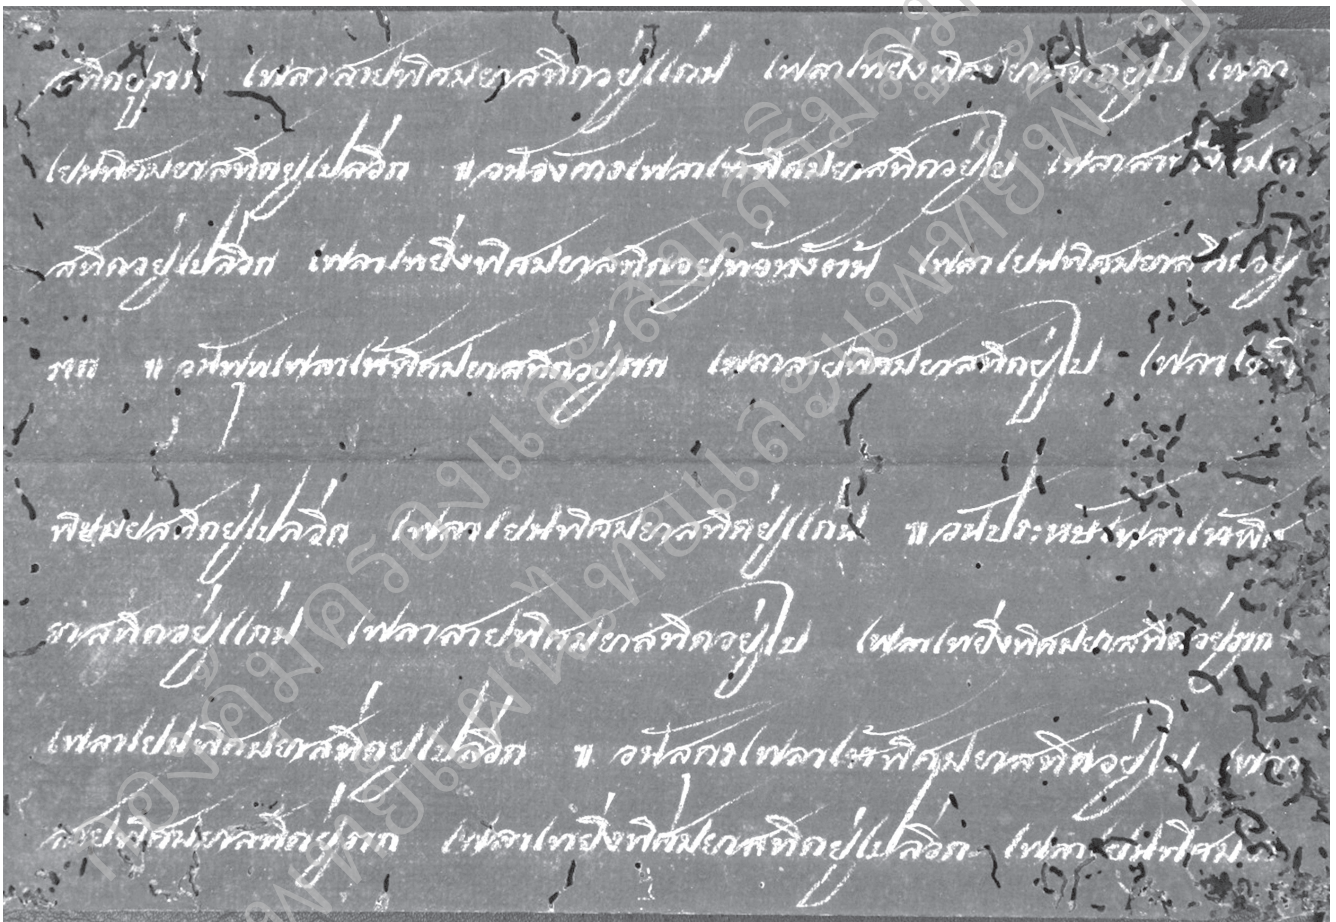 สทิดอยู่ราก เพลาสายพิศมยาสทิดอยู่แก่น เพลาเทยี่งพิศมยาสทิดอยู่ใบ เพลา
เยนพิศมยาสทิดอยู่เปลือก ๚ วันอังคารเพลาเช้าพิศมยาสทิดอยู่ใบ เพลาสาย
สทิดอยู่เปลือก เพลาเทยี่งพิศมยาสทิดอยู่ทั่วทั้งต้น เพลาเยนพิศมยาสทิดอยู่
ราก ๚ วันพุทเพลาเช้าพิศมยาสทิดอยู่ราก เพลาสายพิศมยาสทิดอยู่ใบ เพลา
พิศมยาสทิดอยู่เปลือก เพลาเยนพิศมยาสทิดอยู่แก่น ๚ วันประหัษเพลาเช้าพิศ
ยาสทิดอยู่แก่น เพลาสายพิศมยาสทิดอยู่ใบ เพลาเทยี่งพิศมยาสทิดอยู่ราก
เพลาเยนพิศมยาสทิดอยู่เปลือก ๚ วันสุกรเพลาเช้าพิศมยาสทิดอยู่ใบ เพลา
สายพิศมยาสทิดอยู่ราก เพลาเทยี่งพิศมยาสทิดอยู่เปลือก เพลาเยนพิศม
กองคุ้มครองและส่งเสริมภูมิ
แพทย์แผนไทยและแพทย์พื้น